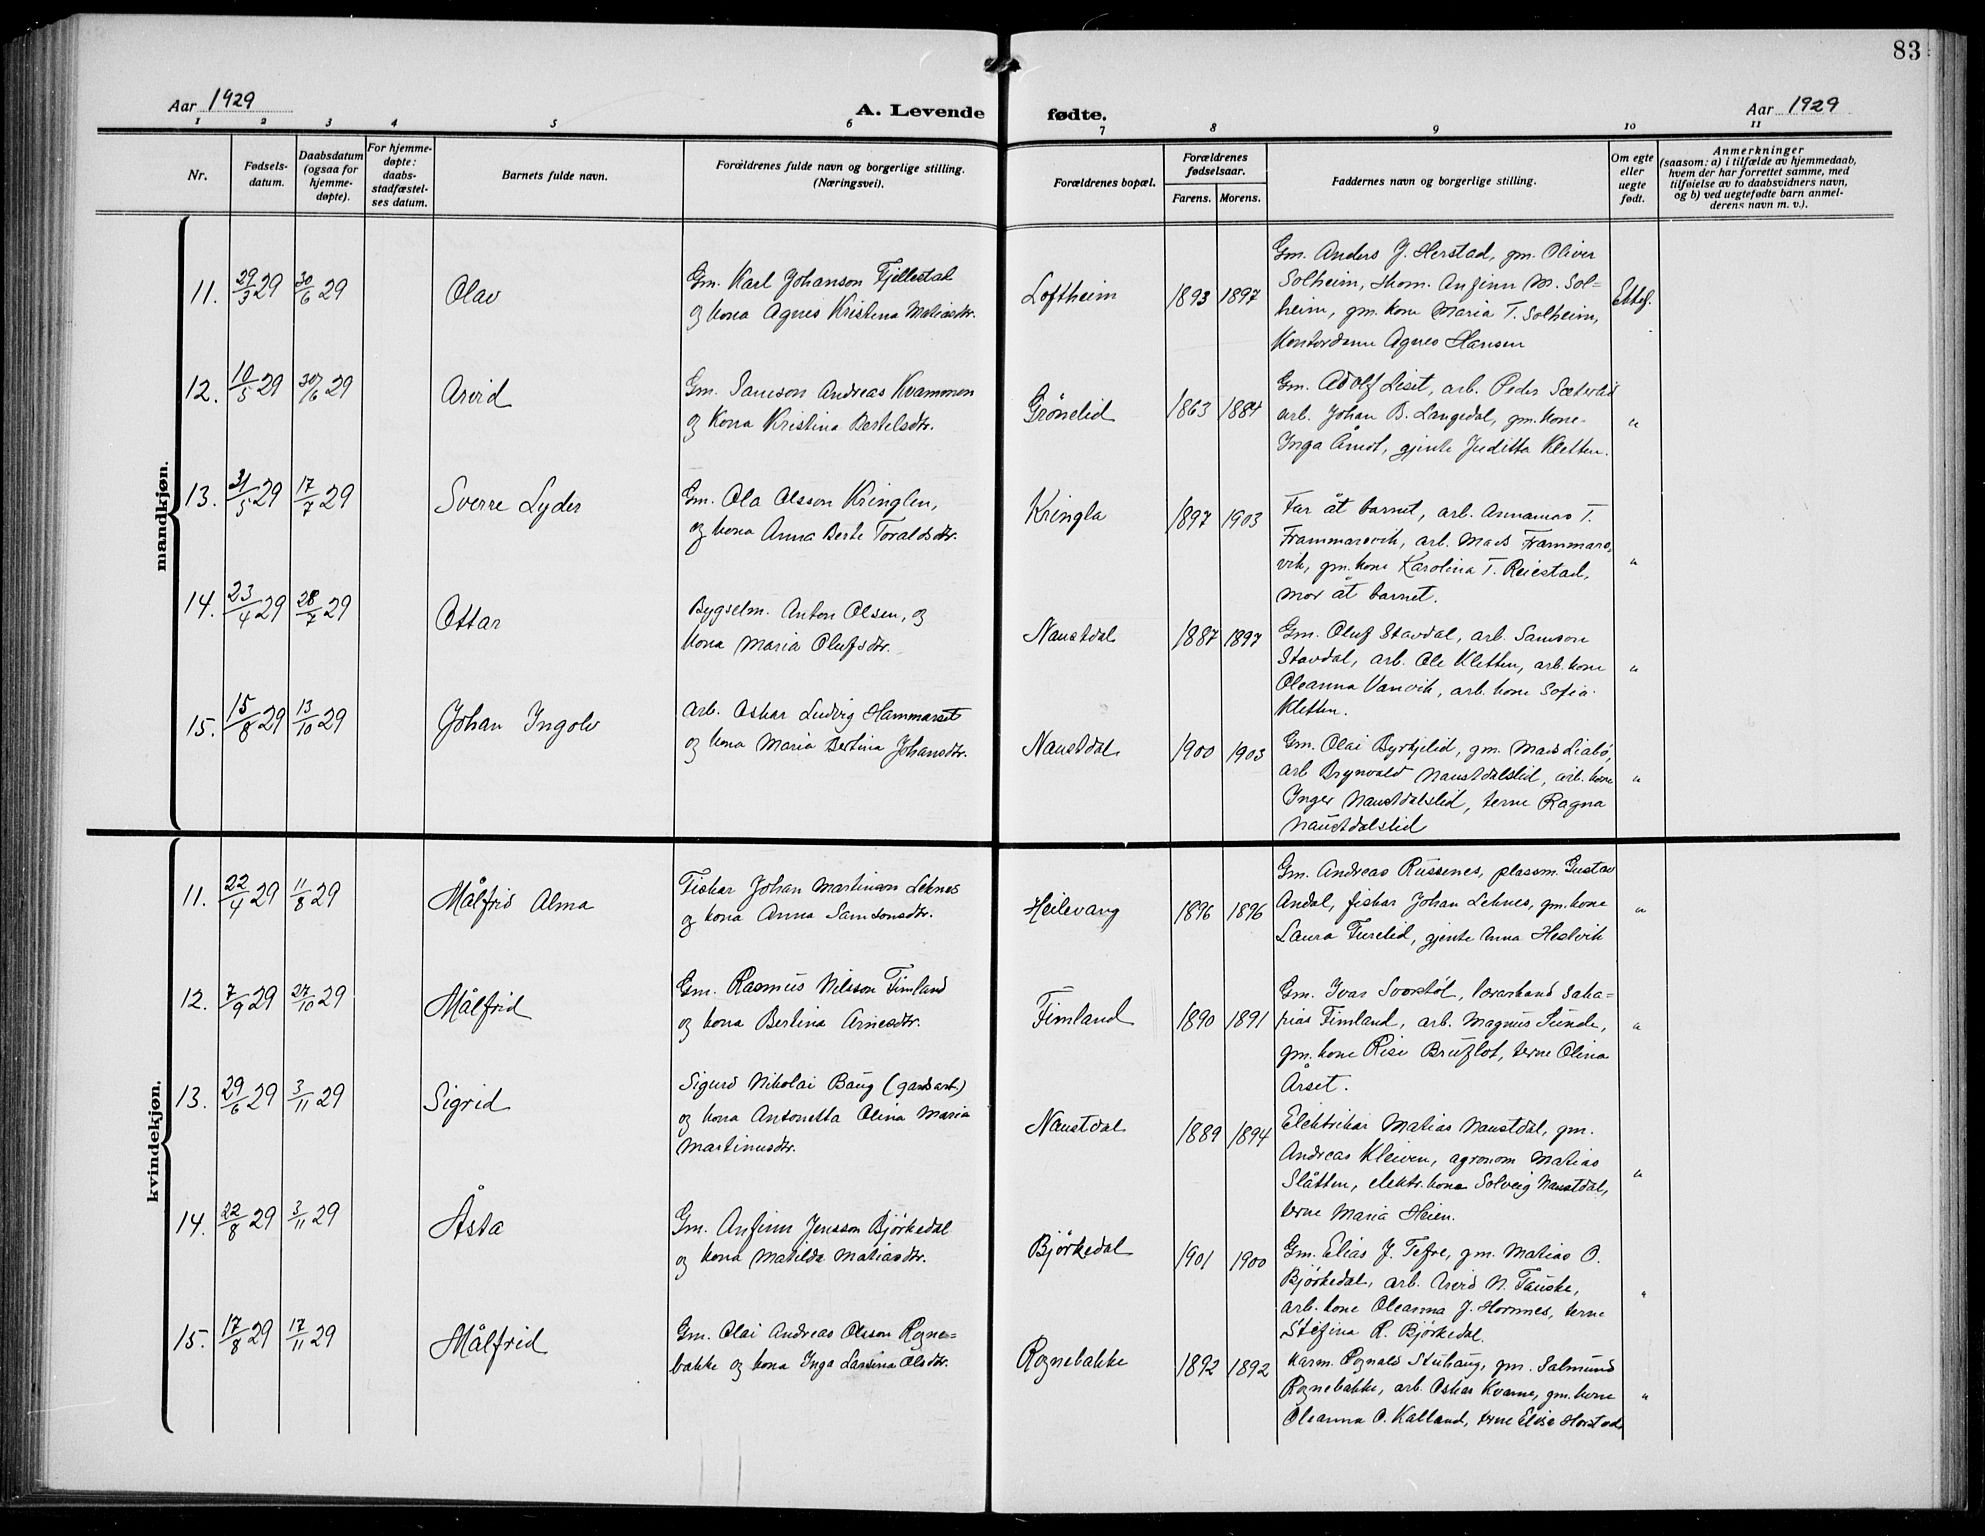 83
Aar 1929
A. Levende fødte.
Aar 1929
1 2 3 4 5 6 7 8 9 10 11
Nr.
Fødsels-
datum.
Daabsdatum
(ogsaa for
hjemme-
døpte).
For hjemme-
døpte:
daabs-
stadfæstel-
ses datum.
Barnets fulde navn.
Forældrenes fulde navn og borgerlige stilling.
(Næringsvei).
Forældrenes bopæl.
Forældrenes
fødselsaar.
Farens. Morens.
Faddernes navn og borgerlige stilling.
Om egte
eller
uegte
født.
Anmerkninger
(saasom: a) i tilfælde av hjemmedaab,
hvem der har forrettet samme, med
tilføielse av to daabsvidners navn,
og b) ved uegtefødte barn anmel-
derens navn m. v.).
mandkjøn.
11. 29/3 29 30/6 29 Olav
Gm. Karl Johanson Fjellestad
og kona Agnes Kristina Matiasdtr.
Loftheim 1893 1897
Gm. Anders J. Herstad, gm. Oliver
Solheim, Thom. Anfinn M. Sol=
heim, gm. kone Maria T. Solheim,
Kontordame Agnes Hansen
Ektef.
12. 10/5 29 30/6 29 Arvid
Gm. Samson Andreas Kvammen
og kona Kristina Bertelsdtr.
Grønelid 1863 1884
Gm. Adolf Liset, arb. Peder Sæterlid
arb. Johan B. Langedal, gm. kone
Inga Åmot, gjente Juditta Kletten.
"
13. 31/5 29 17/7 29 Sverre Lyder
Gm. Ola Olsson Kringlen,
og kona Anna Berte Toraldsdtr.
Kringla 1897 1903
Far åt barnet, arb. Annanias T.
Frammarsvik, arb. Mads Frammars,
vik, gm. kone Karolina T. Reiestad,
mor åt barnet.
"
14. 23/4 29 28/7 29 Ottar
Bygselm. Anton Olsen, og
kona Maria Olufsdtr.
Naustdal 1887 1897
Gm. Oluf Stavdal, arb. Samson
Stavdal, arb. Ole Kletten, arb. kone
Oleanna Vanvik, arb. kone Sofia
Kletten.
"
15. 15/8 29 13/10 29 Johan Ingolv
Arb. Oskar Ludvig Hammarset
og kona Maria Bertina Johansdtr.
Naustdal 1900 1903
Gm. Olai Byrkjelid, gm. Mads Liabø,
arb Brynvald Naustdalslid, arb. kone
Inger Naustdalslid, terne Ragna
Naustdalslid
"
kvindekjøn.
11. 22/4 29 11/8 29 Målfrid Alma
Fiskar Johan Martinson Leknes
og kona Anna Samsonsdtr.
Heilevang 1896 1896
Gm. Andreas Russenes, plassm. Gustav
Andal, fiskar Johan Leknes, gm. kone
Laura Furelid, gjente Anna Heslvik
"
12. 7/9 29 27/10 29 Målfrid
Gm. Rasmus Nilsson Fimland
og kona Bertina Arnesdtr.
Fimland 1890 1891
Gm. Ivar Svorstøl, Vararband Saka=
rias Fimland, arb. Magnus Sunde,
gm. kone Risi Bruflot, terne Olina
Årset.
"
13. 29/6 29 3/11 29 Sigrid
Sigurd Nikolai Baug (gardsarb.)
og kona Antonetta Olina Maria
Martinusdtr.
Naustdal 1889 1894
Elektrikar Matias Naustdal, gm.
Andreas Kleiven, agronom Matias
Slåtten, elektr. kone Solveig Naustdal,
terne Maria Heien.
"
14. 22/8 29 3/11 29 Åsta
Gm. Anfinn Jensson Bjørkedal
og kona Matilda Matiasdtr.
Bjørkedal 1901 1900
Gm. Elias J. Tefre, gm. Matias O.
Bjørkedal, arb. Arvid N. Fauske,
arb. kone Oleanna J. Hornnes, terne
Stefina R. Bjørkedal.
"
15. 17/8 29 17/11 29 Målfrid
Gm. Olai Andreas Olsson Rogne=
bakke og kona Inga Larsina Olsdtr.
Rognebakke 1892 1892
Karm. Rognald Stuhaug, gm. Salmund
Rognebakke, arb. Oskar Kvame, gm. kone
Oleanna O. Kalland, terne Elise Horstad
"